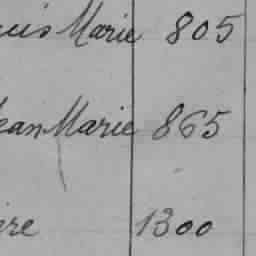 Marie 805
Jean Marie 865
ère 1300